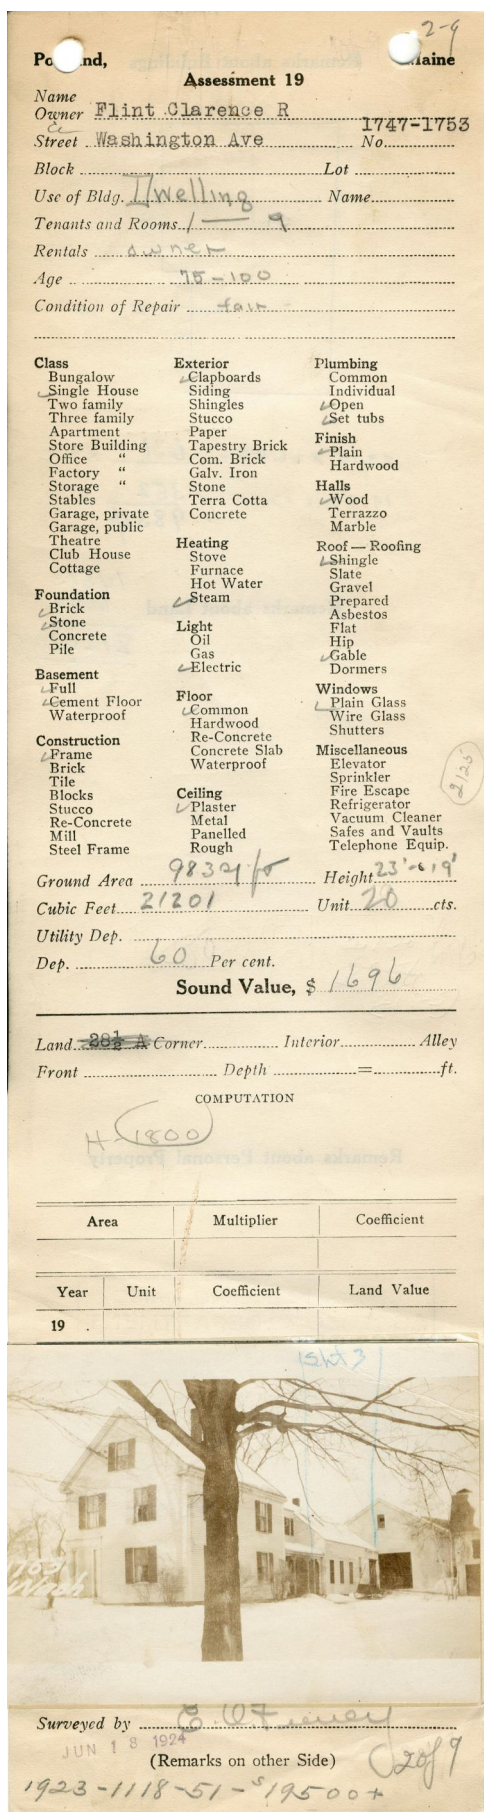 2-9
Po nd, Maine
Assessment 19
Name
Owner Flint Clarence R
Street Washington Ave No. 1747-1753
Block Lot
Use of Bldg. Dwelling Name
Tenants and Rooms 1 — 9
Rentals owner
Age 75-100
Condition of Repair fair
Class
Bungalow
Single House
Two family
Three family
Apartment
Store Building
Office "
Factory "
Storage "
Stables
Garage, private
Garage, public
Theatre
Club House
Cottage
Foundation
Brick
Stone
Concrete
Pile
Basement
Full
Cement Floor
Waterproof
Construction
Frame
Brick
Tile
Blocks
Stucco
Re-Concrete
Mill
Steel Frame
Exterior
Clapboards
Siding
Shingles
Stucco
Paper
Tapestry Brick
Com. Brick
Galv. Iron
Stone
Terra Cotta
Concrete
Heating
Stove
Furnace
Hot Water
Steam
Light
Oil
Gas
Electric
Floor
Common
Hardwood
Re-Concrete
Concrete Slab
Waterproof
Ceiling
Plaster
Metal
Panelled
Rough
Plumbing
Common
Individual
Open
Set tubs
Finish
Plain
Hardwood
Halls
Wood
Terrazzo
Marble
Roof — Roofing
Shingle
Slate
Gravel
Prepared
Asbestos
Flat
Hip
Gable
Dormers
Windows
Plain Glass
Wire Glass
Shutters
Miscellaneous
Elevator
Sprinkler
Fire Escape
Refrigerator
Vacuum Cleaner
Safes and Vaults
Telephone Equip.
2125
Ground Area 983 Height 23'-&19'
Cubic Feet 21201 Unit 20 cts.
Utility Dep.
Dep. 60 Per cent.
Sound Value, $ 1696
Land 28½ A Corner Interior Alley
Front Depth = ft.
COMPUTATION
H-1800
Area Multiplier Coefficient
Year Unit Coefficient Land Value
19 .
Sht 3
1753
Wash
Surveyed by
JUN 18 1924
(Remarks on other Side)
2 of 9
1923-1118-51-$19500+